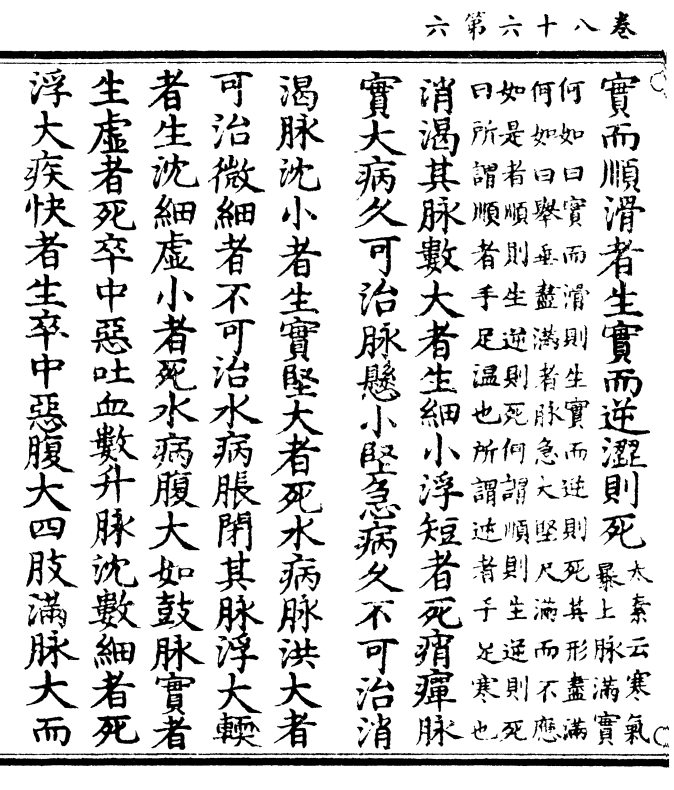 卷八十六第六
實而順滑者生實而逆澀則死太素云寒氣
暴上脉滿實
何如曰實而滑則生實而逆則死其形盡滿
何如曰舉垂盡滿者脉急大堅尺滿而不應
如是者順則生逆則死何謂順則生逆則死
曰所謂順者手足温也所謂逆者手足寒也
消渴其脉數大者生細小浮短者死痟癉脉
實大病久可治脉懸小堅急病久不可治消
渴脉沈小者生實堅大者死水病脉洪大者
可治微細者不可治水病脹閉其脉浮大輭
者生沈細虛小者死水病腹大如鼓脉實者
生虛者死卒中惡吐血數升脉沈數細者死
浮大疾快者生卒中惡腹大四肢滿脉大而